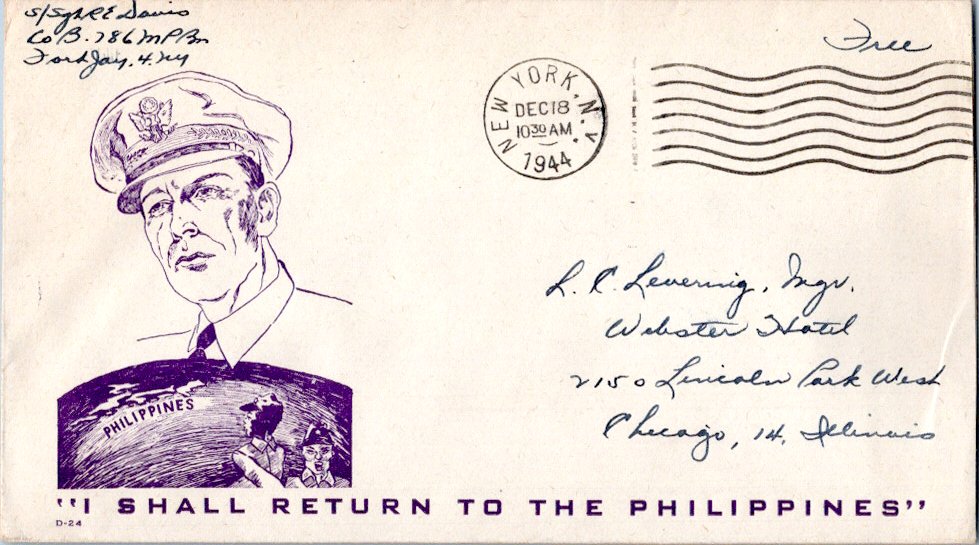 S/Sgt R E Davis
Co B. 786 MP Bn
Fort Jay, 4. NY
Free
NEW YORK, N.Y.
DEC 18
10 30 AM
1944
L. C. Levering, Mgr.
Webster Hotel
2150 Lincoln Park West
Chicago, 14, Illinois
PHILIPPINES
"I SHALL RETURN TO THE PHILIPPINES"
D-24